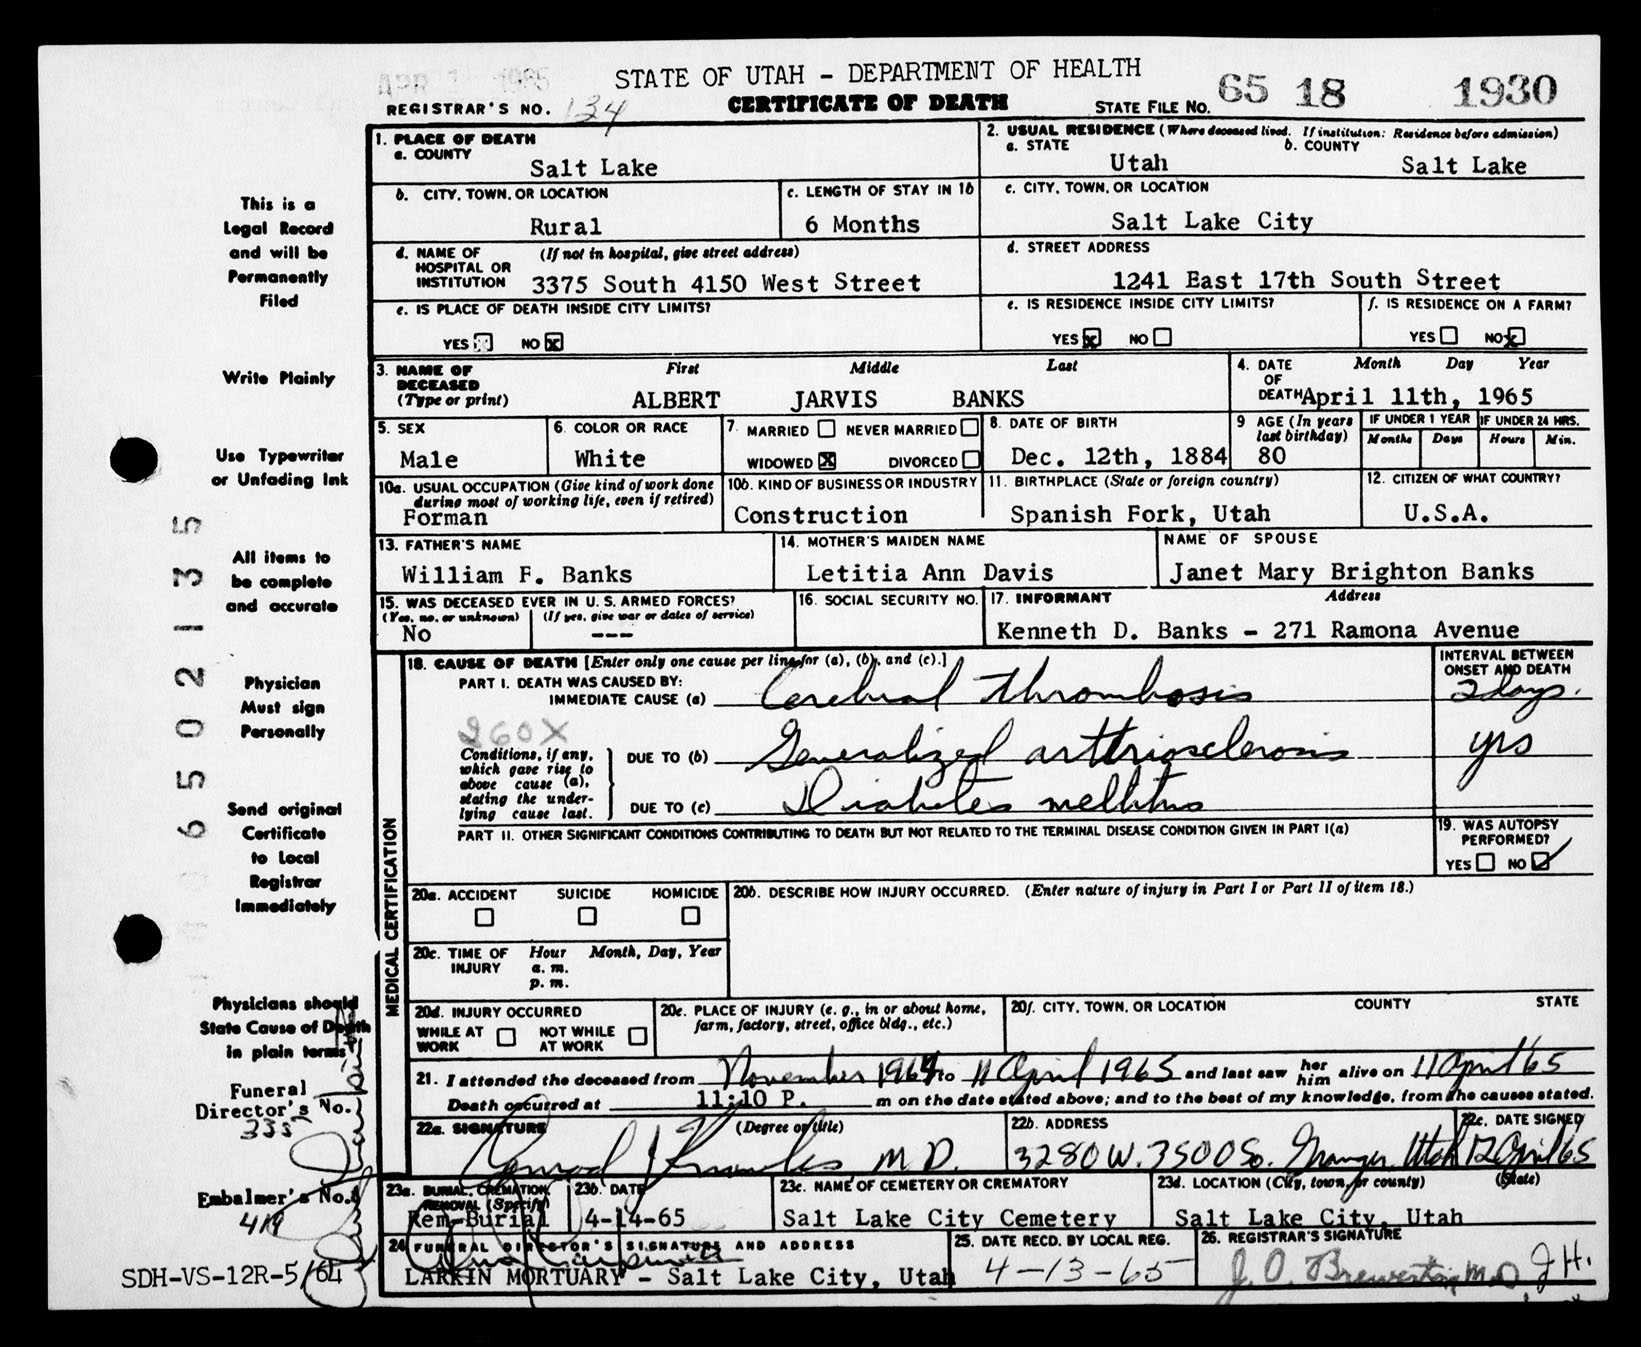 STATE OF UTAH - DEPARTMENT OF HEALTH
CERTIFICATE OF DEATH
APR 1965
REGISTRAR'S NO. 134
STATE FILE NO. 65 18 1930
1. PLACE OF DEATH
a. COUNTY
Salt Lake
2. USUAL RESIDENCE (Where deceased lived. If institution: Residence before admission)
a. STATE
Utah
b. COUNTY
Salt Lake
b. CITY, TOWN, OR LOCATION
Rural
c. LENGTH OF STAY IN 1b
6 Months
c. CITY, TOWN, OR LOCATION
Salt Lake City
d. NAME OF HOSPITAL OR INSTITUTION
(If not in hospital, give street address)
3375 South 4150 West Street
d. STREET ADDRESS
1241 East 17th South Street
e. IS PLACE OF DEATH INSIDE CITY LIMITS?
YES NO x
e. IS RESIDENCE INSIDE CITY LIMITS?
YES x NO
f. IS RESIDENCE ON A FARM?
YES NO x
3. NAME OF DECEASED (Type or print)
First Middle Last
ALBERT JARVIS BANKS
4. DATE OF DEATH
Month Day Year
April 11th, 1965
5. SEX
Male
6. COLOR OR RACE
White
7. MARRIED NEVER MARRIED
WIDOWED x DIVORCED
8. DATE OF BIRTH
Dec. 12th, 1884
9 AGE (In years last birthday)
80
IF UNDER 1 YEAR
Months Days
IF UNDER 24 HRS.
Hours Min.
10a. USUAL OCCUPATION (Give kind of work done during most of working life, even if retired)
Forman
10b. KIND OF BUSINESS OR INDUSTRY
Construction
11. BIRTHPLACE (State or foreign country)
Spanish Fork, Utah
12. CITIZEN OF WHAT COUNTRY?
U.S.A.
13. FATHER'S NAME
William F. Banks
14. MOTHER'S MAIDEN NAME
Letitia Ann Davis
NAME OF SPOUSE
Janet Mary Brighton Banks
15. WAS DECEASED EVER IN U.S. ARMED FORCES?
(Yes, no, or unknown) (If yes, give war or dates of service)
No ---
16. SOCIAL SECURITY NO.
17. INFORMANT Address
Kenneth D. Banks - 271 Ramona Avenue
MEDICAL CERTIFICATION
18. CAUSE OF DEATH [Enter only one cause per line for (a), (b), and (c).]
INTERVAL BETWEEN ONSET AND DEATH
PART I. DEATH WAS CAUSED BY:
IMMEDIATE CAUSE (a) Cerebral thrombosis 2 days.
260X
Conditions, if any, which gave rise to above cause (a), stating the underlying cause last.
DUE TO (b) Generalized arttriosclerosis yrs
DUE TO (c) Diabetes mellitus
PART II. OTHER SIGNIFICANT CONDITIONS CONTRIBUTING TO DEATH BUT NOT RELATED TO THE TERMINAL DISEASE CONDITION GIVEN IN PART I(a)
19. WAS AUTOPSY PERFORMED?
YES NO ✓
20a. ACCIDENT SUICIDE HOMICIDE
20b. DESCRIBE HOW INJURY OCCURRED. (Enter nature of injury in Part I or Part II of item 18.)
20c. TIME OF INJURY
Hour Month, Day, Year
a. m.
p. m.
20d. INJURY OCCURRED
WHILE AT WORK NOT WHILE AT WORK
20e. PLACE OF INJURY (e. g., in or about home, farm, factory, street, office bldg., etc.)
20f. CITY, TOWN, OR LOCATION COUNTY STATE
21. I attended the deceased from November 1964 to 11 April 1965 and last saw her him alive on 11 April '65
Death occurred at 11:10 P. m on the date stated above; and to the best of my knowledge, from the causes stated.
22a. SIGNATURE (Degree or title)
M.D.
22b. ADDRESS
3280 W. 3500 So. Granger Utah
22c. DATE SIGNED
12 April '65
23a. BURIAL, CREMATION, REMOVAL (Specify)
Rem-Burial
23b. DATE
4-14-65
23c. NAME OF CEMETERY OR CREMATORY
Salt Lake City Cemetery
23d. LOCATION (City, town, or county) (State)
Salt Lake City, Utah
24 FUNERAL DIRECTOR'S SIGNATURE AND ADDRESS
LARKIN MORTUARY - Salt Lake City, Utah
25. DATE RECD. BY LOCAL REG.
4-13-65
26. REGISTRAR'S SIGNATURE
J. O. Brewerton M.D. J H.
This is a
Legal Record
and will be
Permanently
Filed
Write Plainly
Use Typewriter
or Unfading Ink
All items to
be complete
and accurate
Physician
Must sign
Personally
Send original
Certificate
to Local
Registrar
Immediately
Physicians should
State Cause of Death
in plain terms
Funeral
Director's No.
335
Embalmer's No.
419
SDH-VS-12R-5/64
6502135